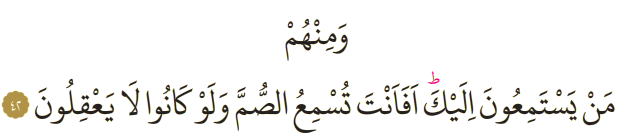 وَمِنْهُمْ
مَنْ يَسْتَمِعُونَ اِلَيْكَؕ اَفَاَنْتَ تُسْمِعُ الصُّمَّ وَلَوْ كَانُوا لَا يَعْقِلُونَ ٤٢